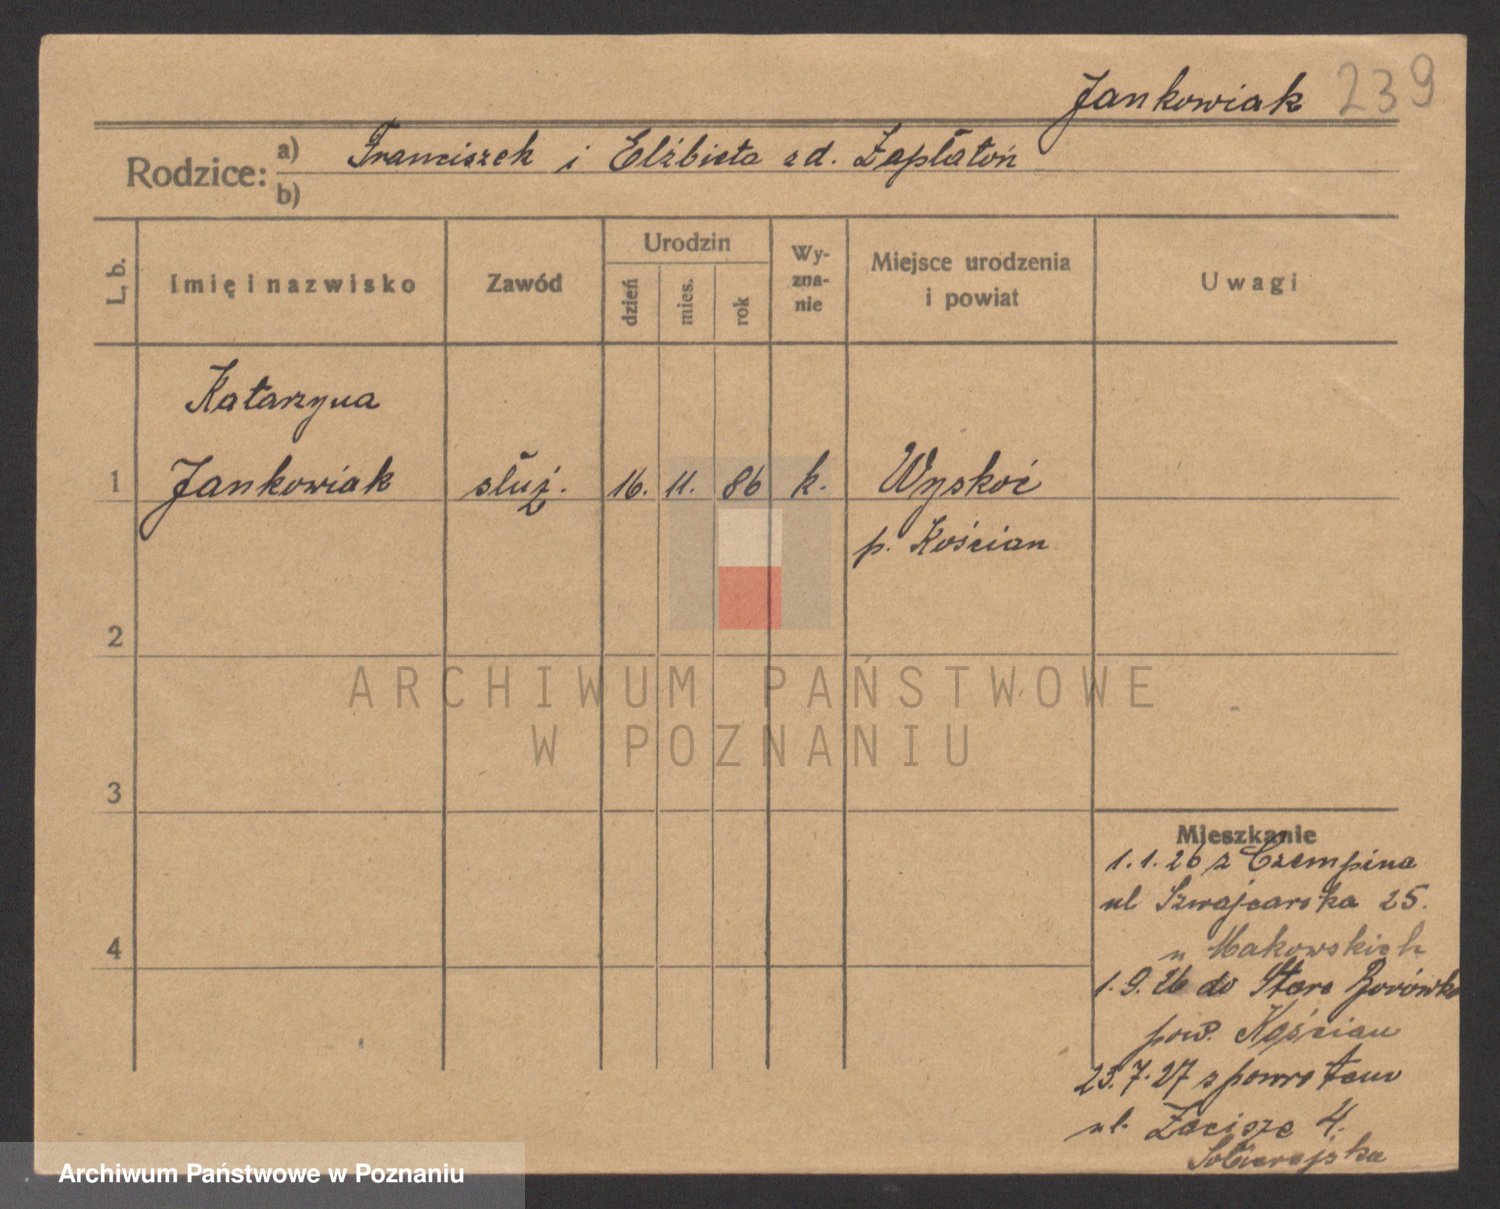 Jankowiak 239
Rodzice: a) Franciszek i Elżbieta zd. Zapłatoń
b)
L. b. Imię i nazwisko Zawód Urodzin dzień mies. rok Wy-zna-nie Miejsce urodzenia i powiat Uwagi
Katarzyna
1 Jankowiak służ. 16. 11. 86 k. Wyskoć
p. Kościan
2
ARCHIWUM PAŃSTWOWE
W POZNANIU
3
4
Mieszkanie
1.1.26 z Czempina
ul Szwajcarska 25.
u Makowskich
1.9.26 do Stare
pow. Kościan
23.7.27 z powrotem
ul. Zacisze 4.
Archiwum Państwowe w Poznaniu